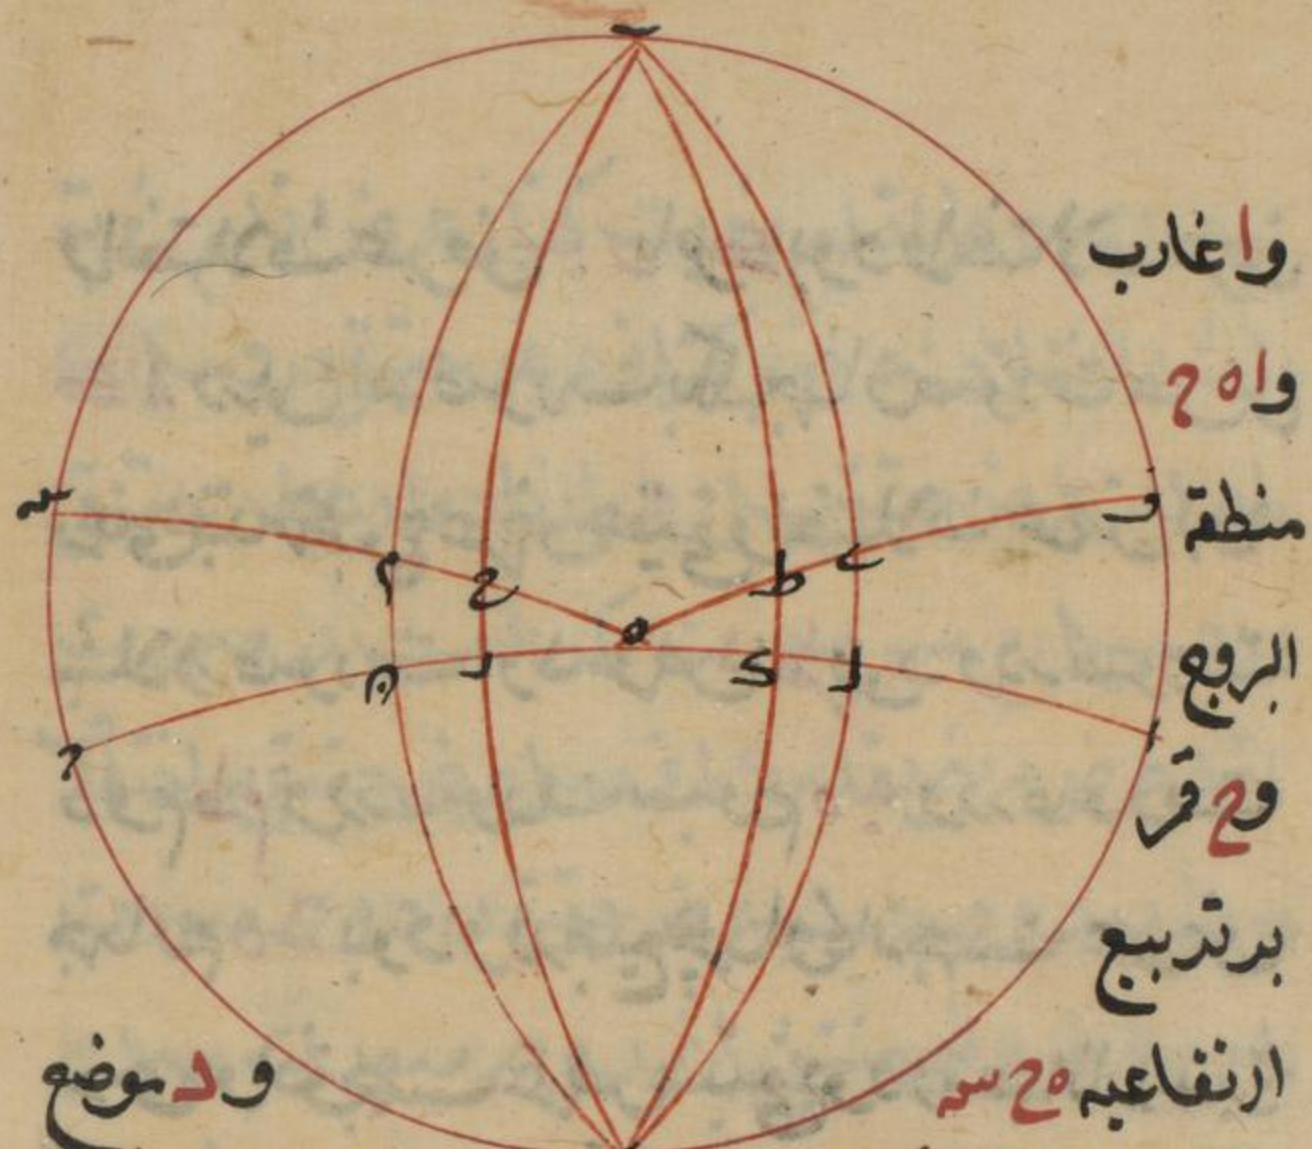 ب
وا غارب
وا ه ح
منطقة
البروج
وح قمر
بر تربیع
ارتفاعیه ه ح س
و د موضع
س
م
ح
ه
ط
ی
و
ن
د
ك
ل
ا